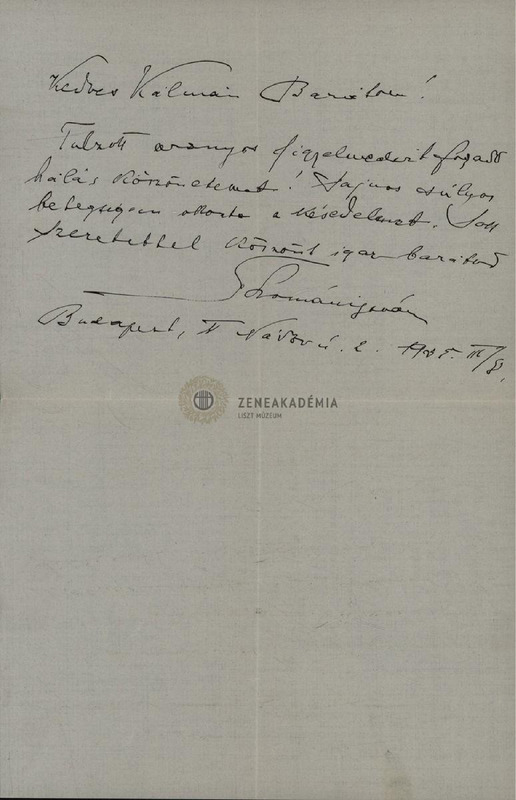 Kedves Kálmán Barátom!
Tulzott aranyos figyelmedért fogadd
hálás köszönetemet! Sajnos súlyos
betegségem okozta a késedelmet. Sok
szeretettel köszönt igaz barátod
Thománistván
Budapest, V Nádor u. 2. 1935. III/
ZENEAKADÉMIA
LISZT MÚZEUM